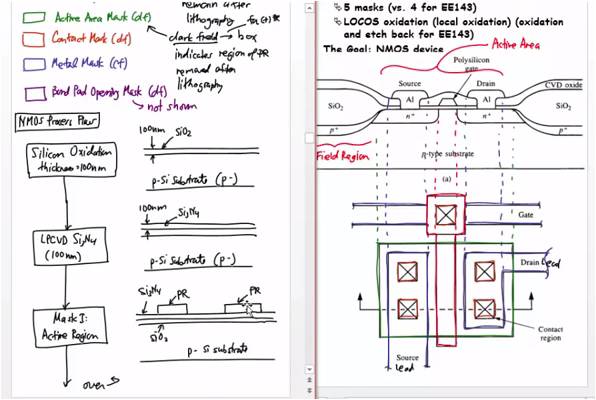 remain after
lithography
Active Area Mask (df)
for (+) PR
Contact Mask (df)
dark field → box
Metal Mask (cf)
indicates region of PR
removed after
lithography
Bond Pad Opening Mask (df)
→ not shown
NMOS Process Flow
Silicon Oxidation
thickness=100nm
100nm
SiO2
p-Si Substrate (p-)
LPCVD Si3N4
(100nm)
100nm
Si3N4
p-Si Substrate (p-)
Mask I:
Active Region
Si3N4
PR
PR
SiO2
p-Si substrate
over →
5 masks (vs. 4 for EE143)
LOCOS oxidation (local oxidation) (oxidation
and etch back for EE143)
The Goal: NMOS device
Active Area
Polysilicon
gate
Source
Drain
CVD oxide
Al
Al
SiO2
SiO2
n+
n+
p+
p+
Field Region
p-type substrate
(a)
Gate
Drain Lead
Contact
region
Source
Lead